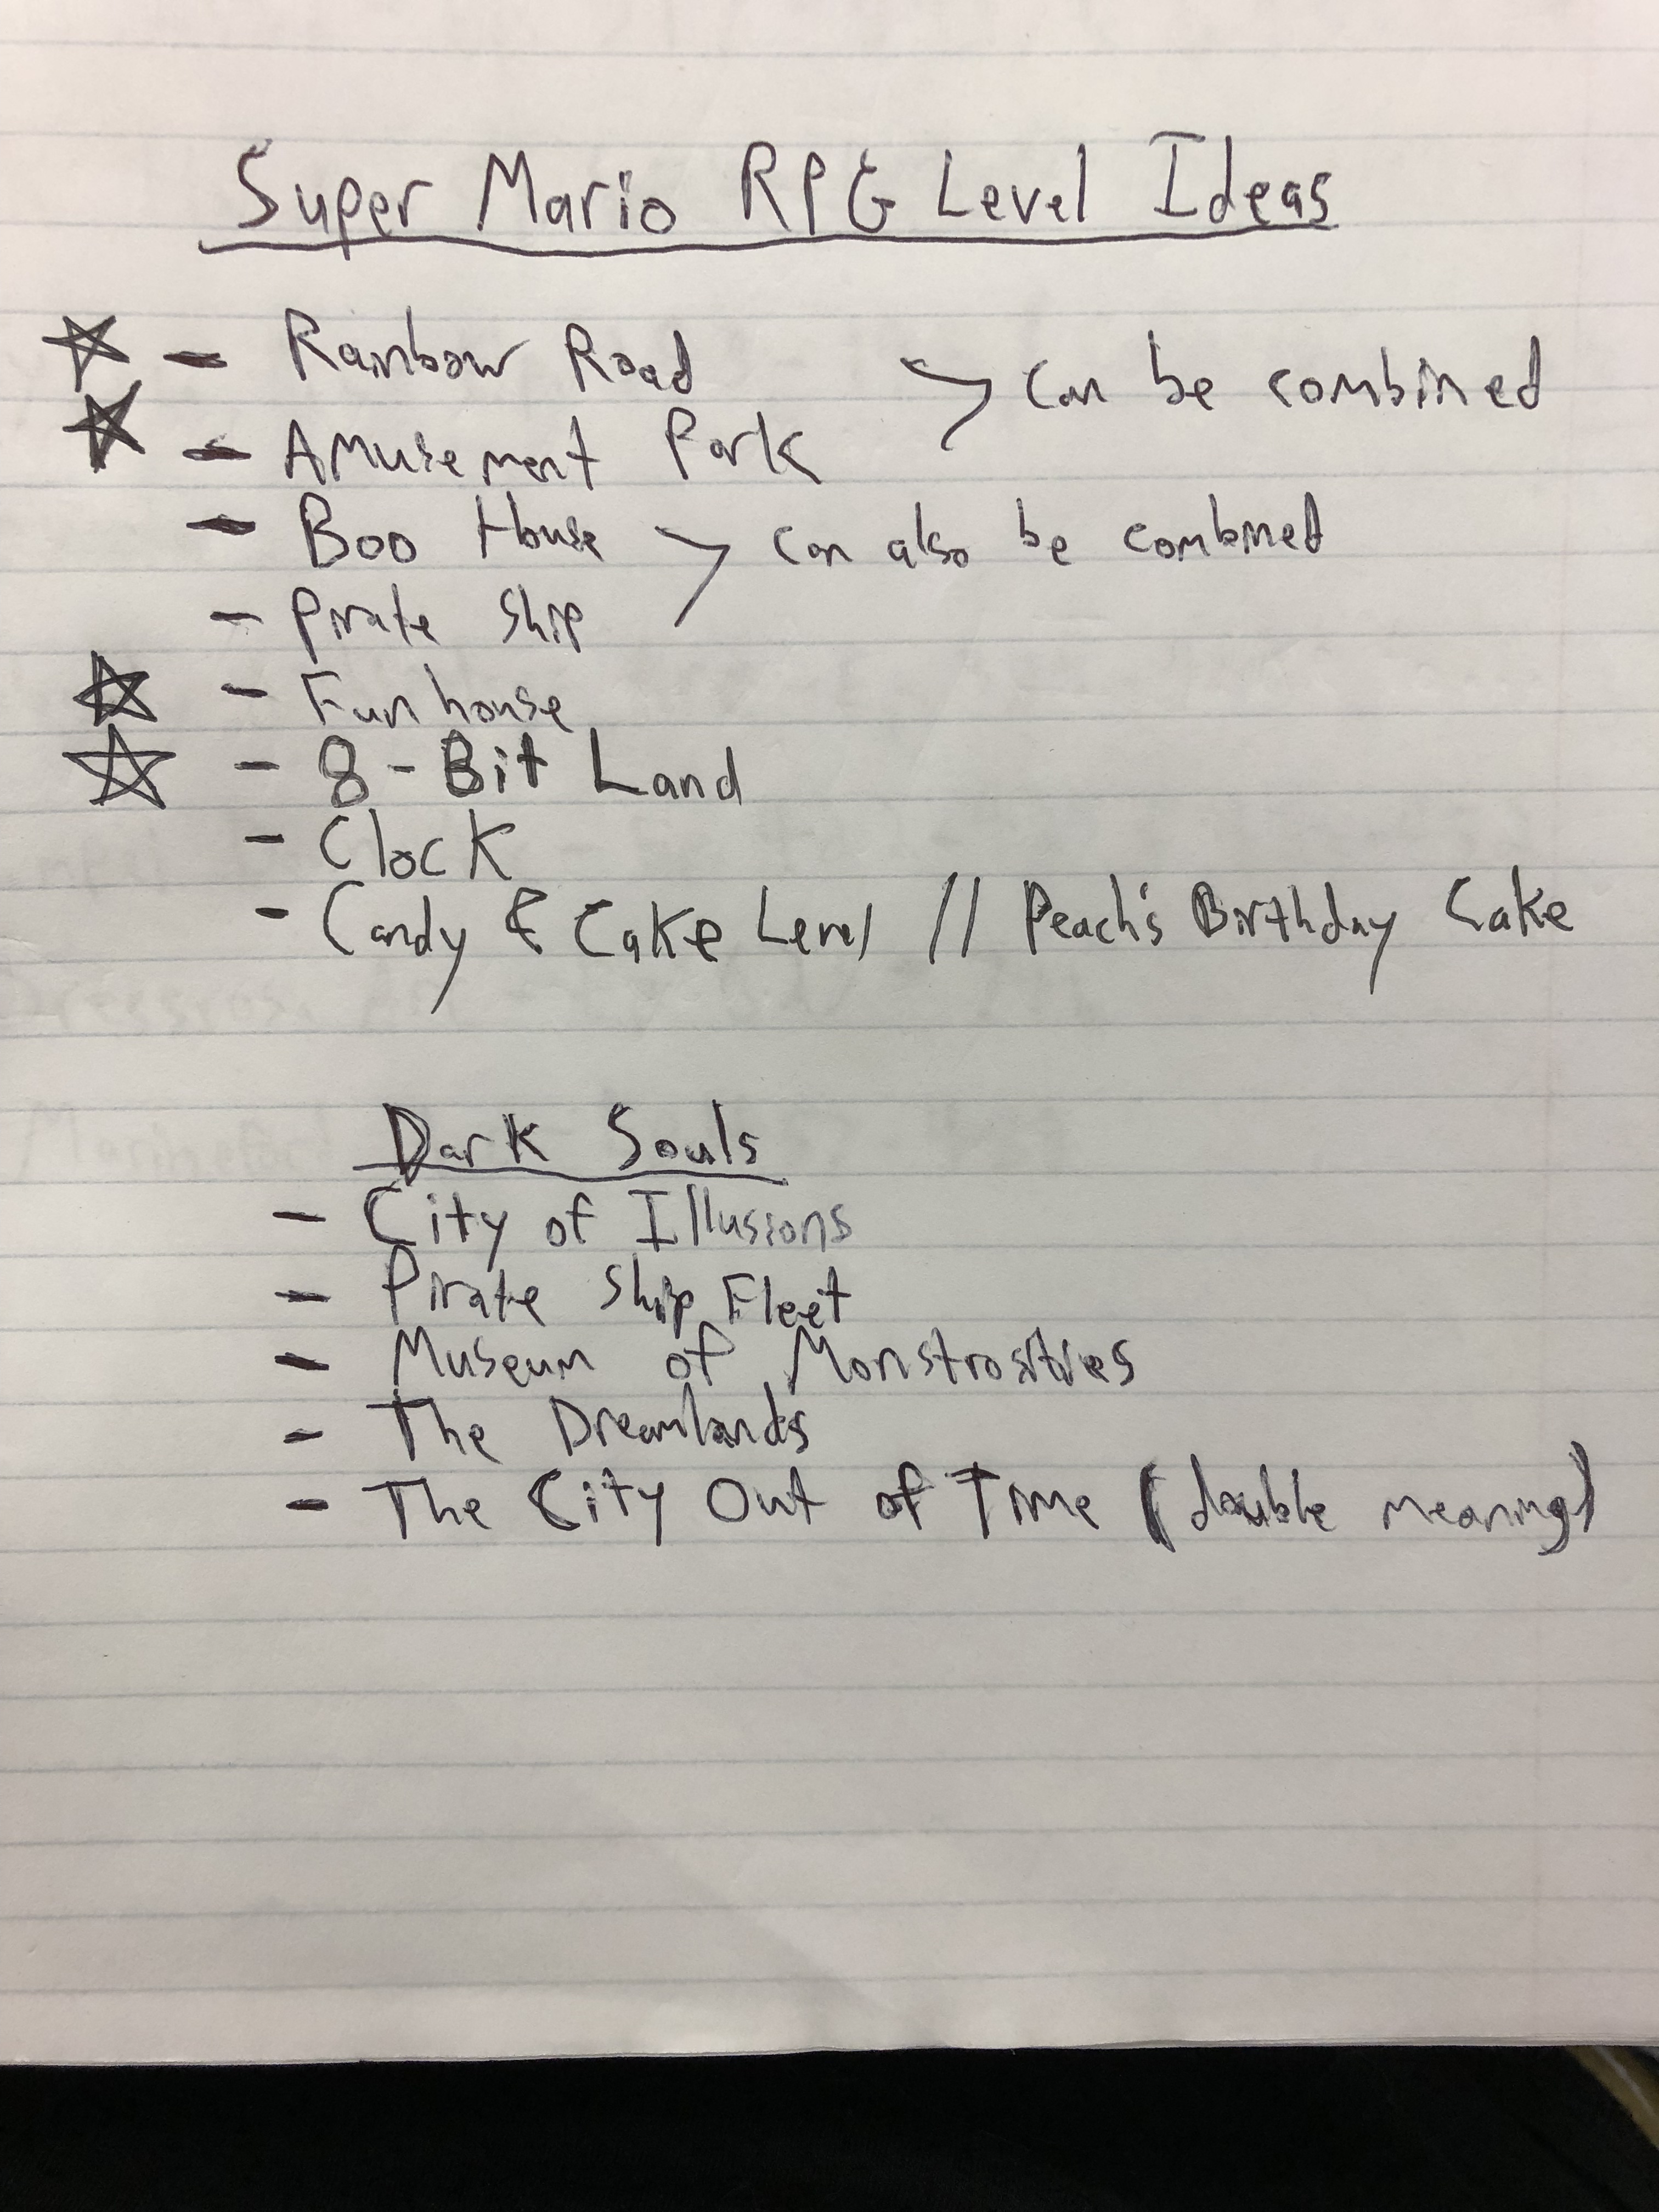 Super Mario RPG Level Ideas
- Rainbow Road > can be combined
- Amusement Park
- Boo House > can also be combined
- Pirate Ship
- Funhouse
- 8-Bit Land
- Clock
- Candy & Cake Level // Peach's Birthday Cake
Dark Souls
- City of Illusions
- Pirate Ship Fleet
- Museum of Monstrosities
- The Dreamlands
- The City Out of Time (double meaning)